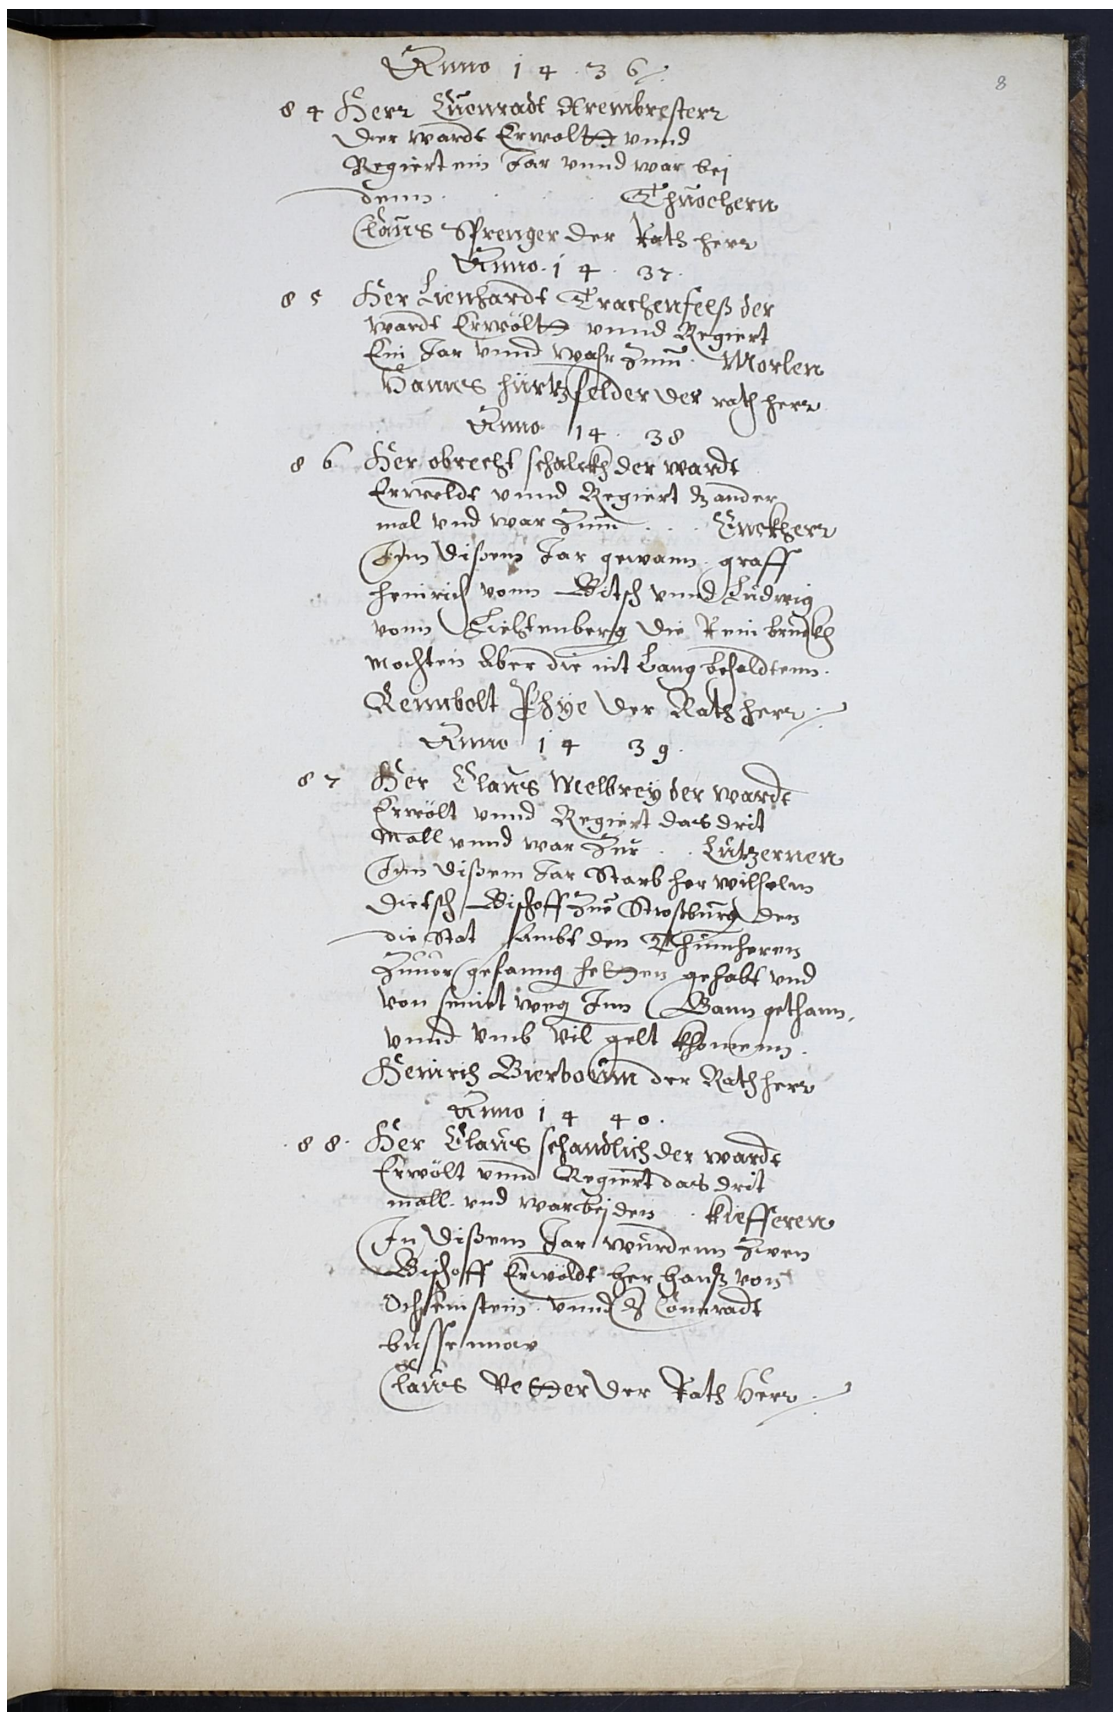 Anno 1 4 3 6
8
8 4 Herr Cuenradt Arembrester
der wardt Erwolt vnnd
Regiert ein Jar vnnd war bei
denn Thuochern
Claus Sprenger der Rath herr
Anno 1 4 37
8 5 Her Lienhardt Trachenfelß der
wardt Erwölt vnnd Regiert
Ein Jar vnnd wahr Zum Morlen
Hanns hürtzfelder der rath herr
Anno 14 38
8 6 Her obrecht schalckh der wardt
Erwoldt vnnd Regiert dz ander
mal vnd war Zum Enckher
Inn dißem Jar gewann graff
heinrich vonn Bitsch vnnd Ludwig
vonn Liechtenberg die Rein bruckh
mochten Aber die nit Lang behaldtenn.
Rennbolt Sphye der Rath herr
Anno 1 4 3 9
8 7 Her Claus Melbrey der wardt
Erwölt vnnd Regiert das drit
Mall vnnd war Zur Lutzernen
Inn dißem Jar Starb her wilhelm
dietsch Bischoff Zue Stroßburg den
die Stat sambt den Thumheren
Zuuor gefanng hetten gehabt vnd
von seinet weg Inn Bann gethann
vnnd vmb vil gelt khomenn.
Heinrich Bierboum der Rath herr
Anno 1 4 4 0.
8 8 Her Claus schandlich der wardt
Erwölt vnnd Regiert das drit
mall vnd war bei den kiefferen
In dißem Jar wurdenn zwen
Bischoff Erwöldt her hanß von
Ochsenstein vnnd H Connradt
bussennow
Claus Vetter der Rath Herr